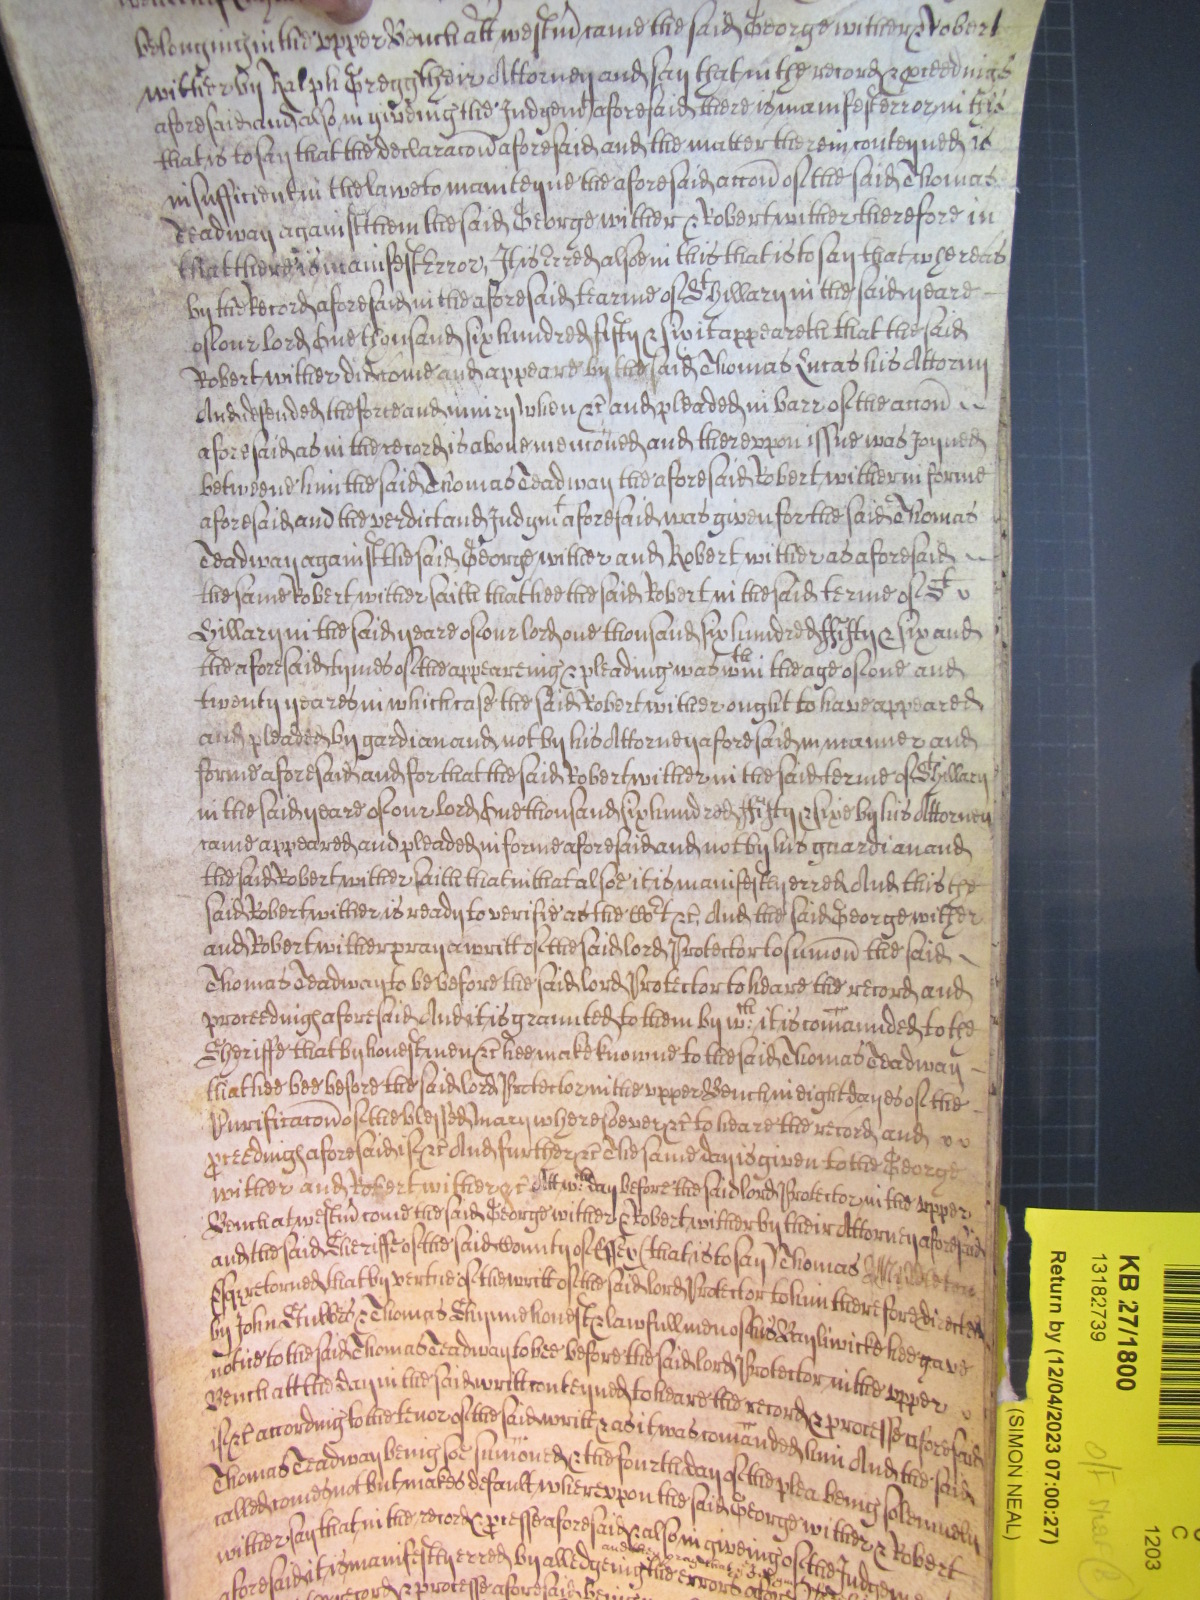 belonging in the upper Bench att westm̃ came the said George wither & Robert
wither by Ralph Gregg their Attorney and say that in the record & p̱ceedings
aforesaid and also in giveing the Judgem̃t aforesaid there is manifest error in this
that is to say that the declaracoñ aforesaid and the matter therein conteyned is
insufficient in the lawe to mainteyne the aforesaid accoñ of the said Thomas
Treadway against them the said George wither & Robert wither therefore in
that there is manifest Error, It is Erred alsoe in this that is to say that whereas
by the Record aforesaid in the aforesaid tearme of St Hillary in the said yeare
of our lord One thousand six hundred fifty & six it appeareth that the said
Robert wither did come and appeare by the said Thomas Lucas his Attorny
And defended the force and iniury when &c̃ and pleaded in barr of the accoñ
aforesaid as in the record is above mencõned and thereuppon issue was Joyned
betweene him the said Thomas Treadway the aforesaid Robert wither in forme
aforesaid and the verdict and Judgmt aforesaid was given for the said Thomas
Treadway against the said George wither and Robert wither as aforesaid
the same Robert wither saith that hee the said Robert in the said terme of St
Hillary in the said yeare of our lord one thousand six hundred ffifty & six and
the aforesaid tymes of the appeareing & pleading was wthin the age of one and
twenty yeares in which case the said Robert wither ought to have appeared
and pleaded by gardian and not by his Attorney aforesaid in manner and
forme aforesaid and for that the said Robert wither in the said terme of St Hillary
in the said yeare of our lord One thousand six hundred ffifty & sixe by his Attorney
came appeared and pleaded in forme aforesaid and not by his guardian and
the said Robert wither saith that in that alsoe it is manifestly erred And this the
said Robert wither is ready to verifie as the Cort &c̃, And the said George wither
and Robert wither pray a writt of the said lord Protector to sum̃on the said
Thomas Treadway to be before the said lord Protector to heare the record and
proceedings aforesaid And it is graunted to them by wch: it is com̃aunded to the
Sheriffe that by honest men &c̃ hee make knowne to the said Thomas Treadway
that hee bee before the said lord Protector in the upper Bench in eight dayes of the
Purificacoñ of the blessed Mary wheresoever &c̃ to heare the record and
p̱ceedings aforesaid if &c̃ And further &c̃ The same day is given to the George
wither and Robert wither &c̃ Att wch day before the said lord Protector in the upper
Bench at westm̃ come the said George wither & Robert wither by their Attorney aforesaid
and the said Sheriffe of the said County of Essex (that is to say) Thomas Middleton
Esqr retorned that by vertue of the writt of the said lord Protector to him therefore directed
by John Stubbes & Thomas Thyme honest & lawfull men of his Bayliwicke hee gave
notice to the said Thomas Treadway to bee before the said lord Protector in the upper
Bench att the day in the said writt conteyned to heare the record & processe aforesaid
if &c̃ according to the tenor of the said writt & as it was com̃anded him And the said
Thomas Treadway being soe sum̃oned & the fourth day of the plea being solemnely
called comes not but makes default whereuppon the said George wither & Robert
wither say that in the record & p̱cesse aforesaid & also in giveing of the Judgem̃t
aforesaid it is manifestly erred by alledgeing the errors
record & processe aforesaid
KB 27/1800
13182739
Return by (12/04/2023 07:00:27)
(SIMON NEAL)
1203
C